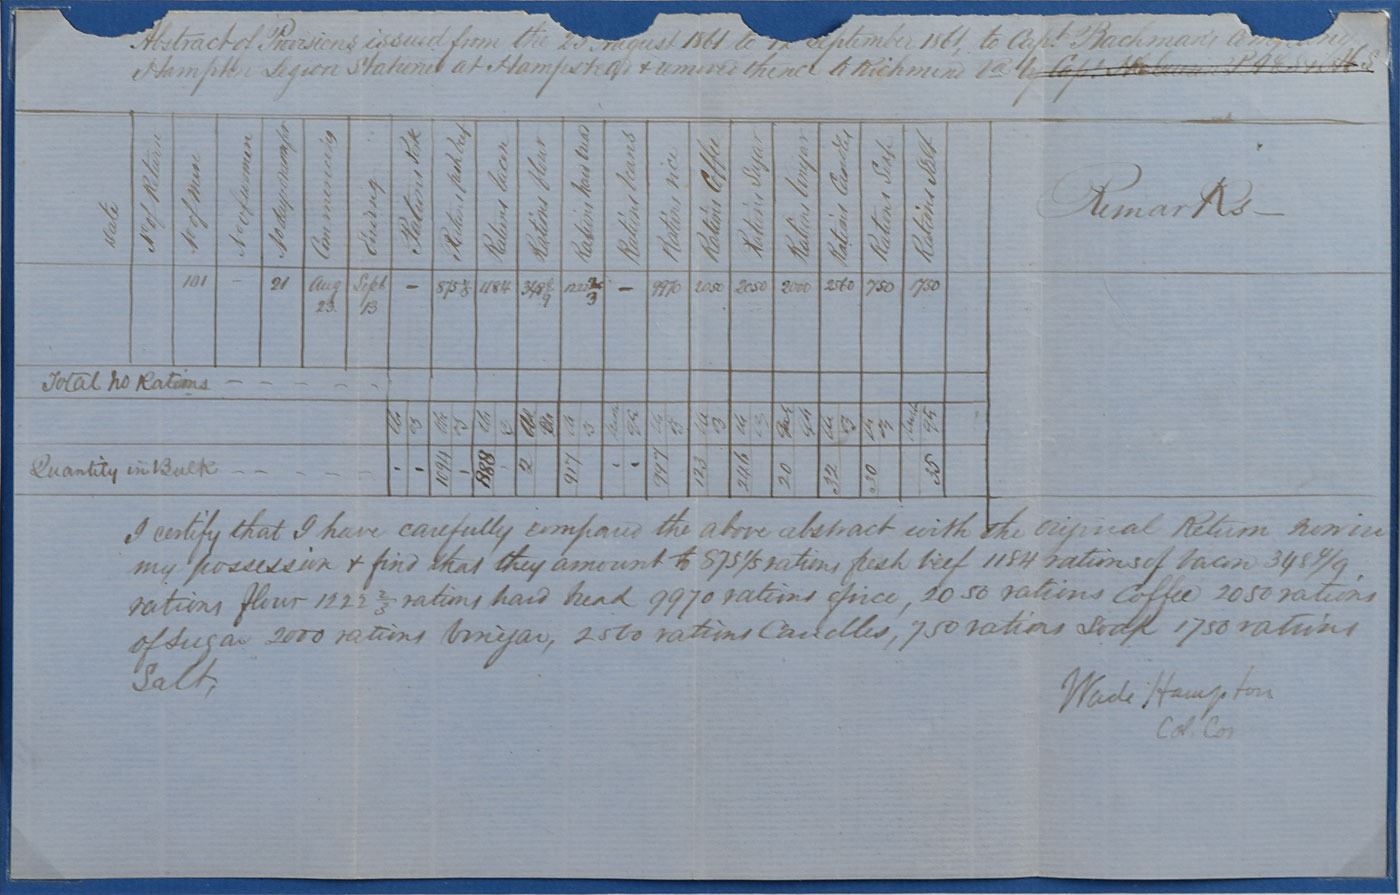 Abstract of Provisions issued from the 23 August 1861 to 12 September 1861, to Capt Bachman's Company
Hampton Legion Stationed at Hampstead & removed thence to Richmond Va by Capt
Date
No of Return
No of Men
No of women
No days
Commencing
Ending
Rations Pork
Rations fresh beef
Rations bacon
Rations flour
Rations hard bread
Rations beans
Rations rice
Rations Coffee
Rations Sugar
Rations Vinegar
Rations Candles
Rations Soap
Rations Salt
Remarks
101 – 21 Aug Sept – 875 1184 – 9970 2050 2050 2000 2560 750 1750
23 13
Total No Rations
Quantity in Bulk - - 1094 888 2 917 - - 997 123 246 20 32 30 35
I certify that I have carefully compared the above abstract with the original Return now in
my possession & find that they amount to 875 1/5 rations fresh beef 1184 rations of bacon 348 4/9
rations flour 1222 2/3 rations hard bread 9970 rations of rice, 2050 rations Coffee 2050 rations
of Sugar 2000 rations Vinegar, 2560 rations Candles, 750 rations Soap 1750 rations
Salt,
Wade Hampton
Col. Com